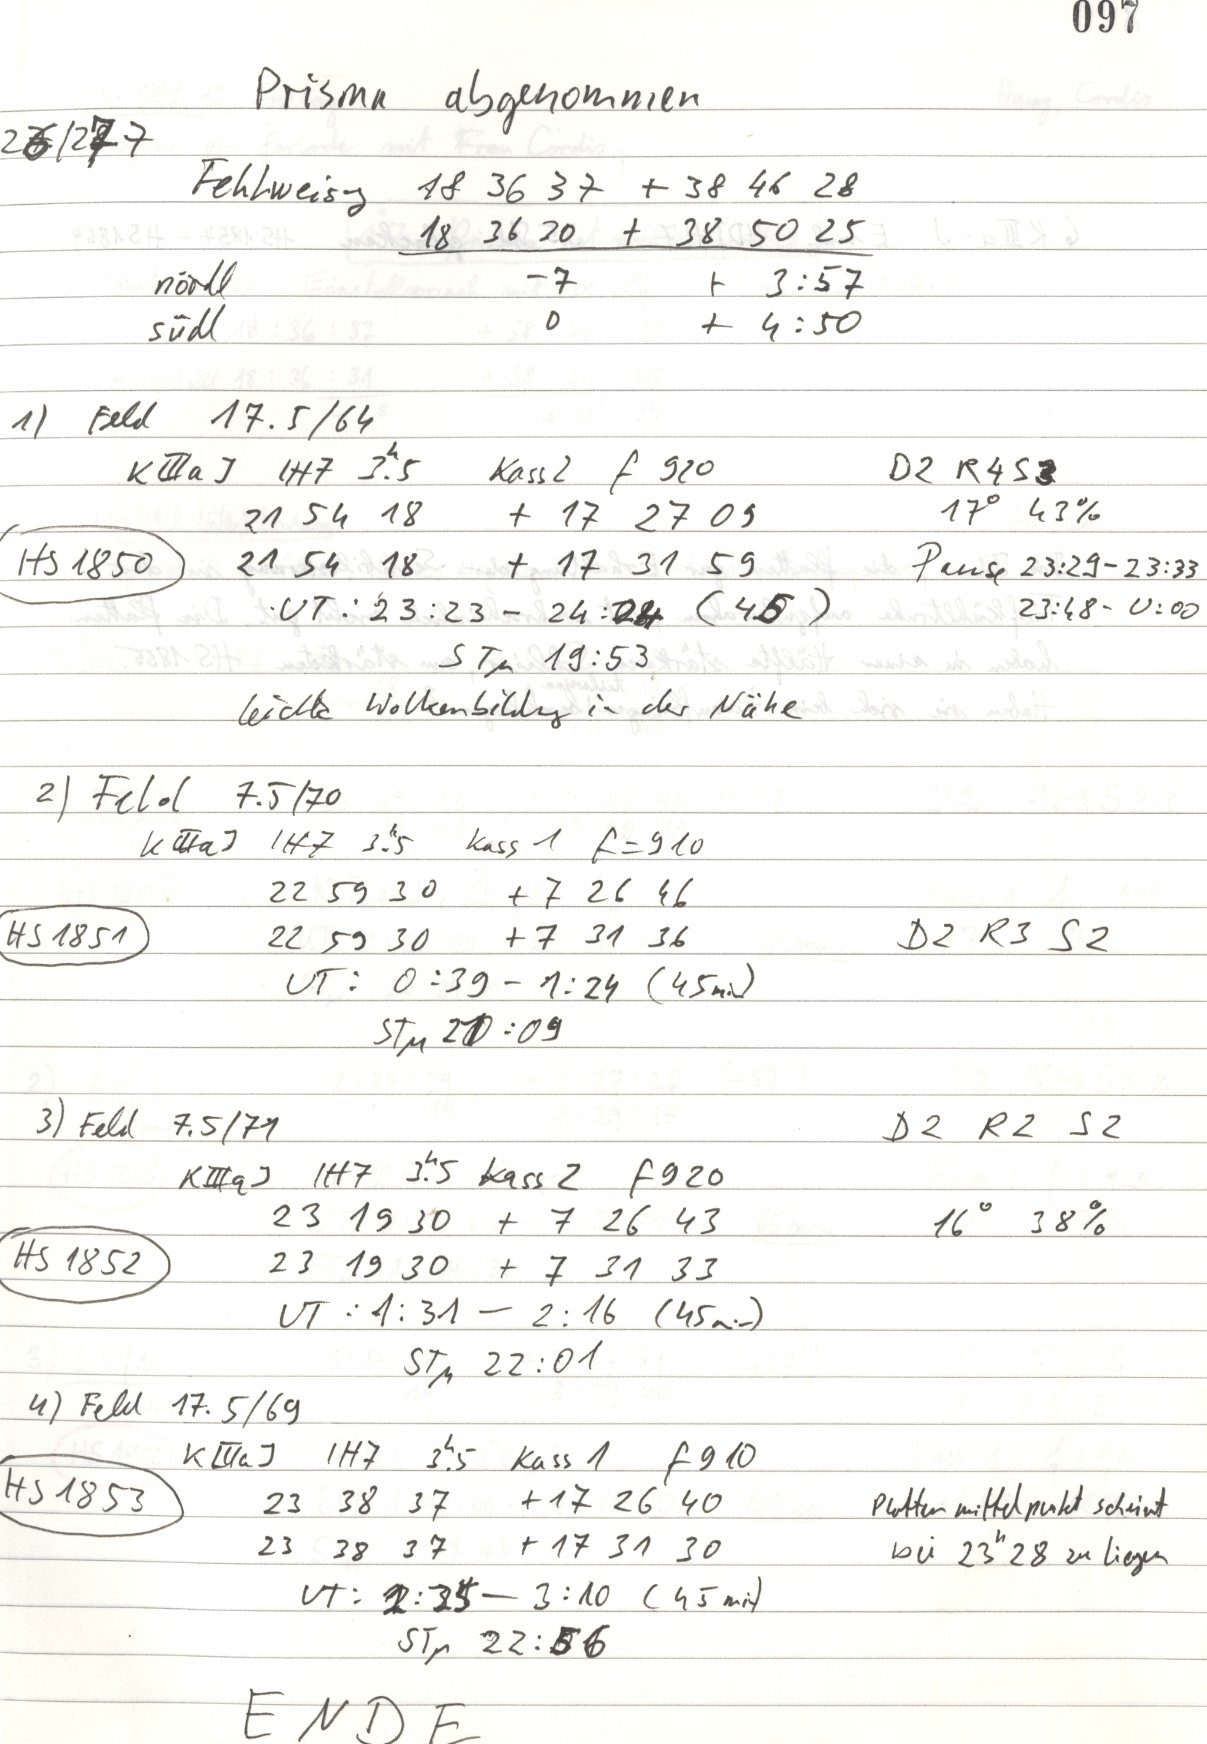 097
Prisma abgenommen
26/27 7
Fehlweisg 18 36 37 + 38 46 28
18 36 20 + 38 50 25
nördl -7 + 3:57
südl 0 + 4:50
1) Feld 17.5/64
K IIIa J 1H7 3.ʰ5 Kass 2 f 920 D2 R4 S2
21 54 18 + 17 27 09 17° 43%
HS 1850 21 54 18 + 17 31 59 Pause 23:29-23:33
UT: 23:23 - 24:24 (45) 23:48 - 0:00
STμ 19:53
leichte Wolkenbildg in der Nähe
2) Feld 7.5/70
K IIIa J 1H7 3.ʰ5 Kass 1 f=910
22 59 30 + 7 26 46
HS 1851 22 59 30 + 7 31 36 D2 R3 S2
UT: 0:39 - 1:24 (45 min)
STμ 21:09
3) Feld 7.5/71 D2 R2 S2
K IIIa J 1H7 3.ʰ5 Kass 2 f 920
23 19 30 + 7 26 43 16° 38%
HS 1852 23 19 30 + 7 31 33
UT: 1:31 - 2:16 (45 min)
STμ 22:01
4) Feld 17.5/69
K IIIa J 1H7 3.ʰ5 Kass 1 f 910
HS 1853 23 38 37 + 17 26 40 Plattenmittelpunkt scheint
23 38 37 + 17 31 30 bei 23ʰ28 zu liegen
UT: 2:25 - 3:10 (45 min)
STμ 22:56
ENDE